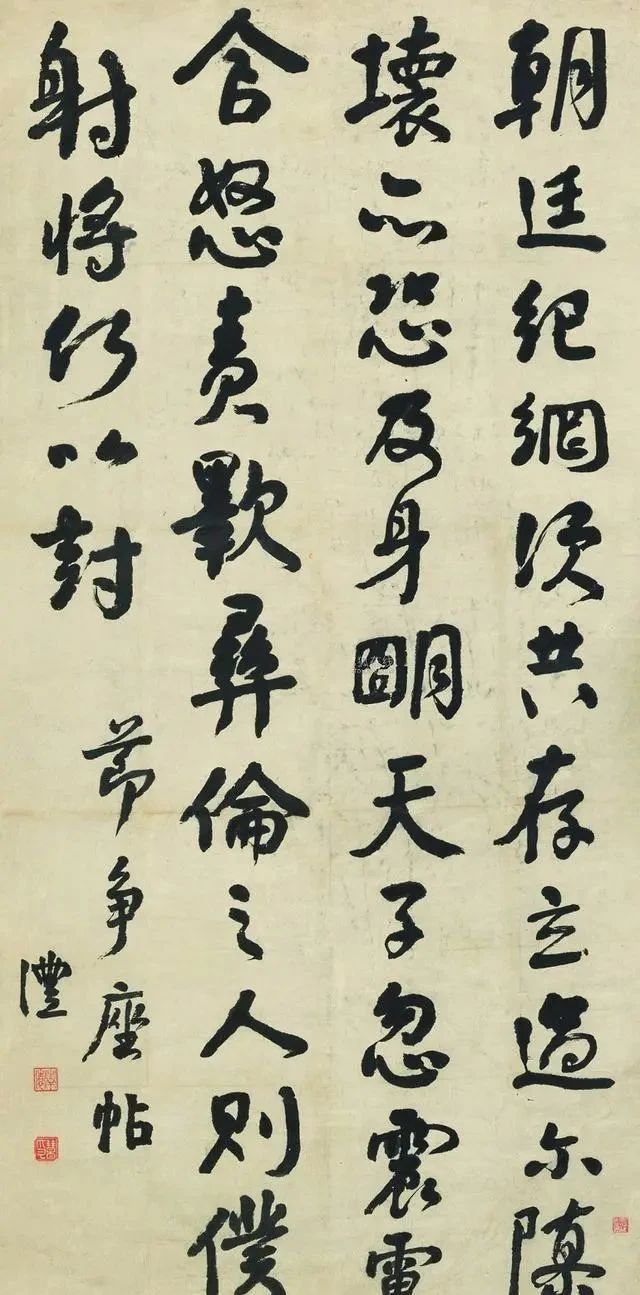 朝廷紀綱須共存立過尔隳
壞亦恐及身明天子忽震電
含怒責斁彝倫之人則僕
射將何以對
節争座帖
澧